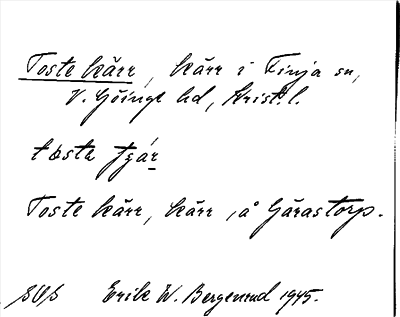 Toste kärr, kärr i Finja sn,
V. Göinge hd, Krist. l.
tosta
Toste kärr, kärr, å Gårastorp.
SOS Erik W. Bergenrud 1945.